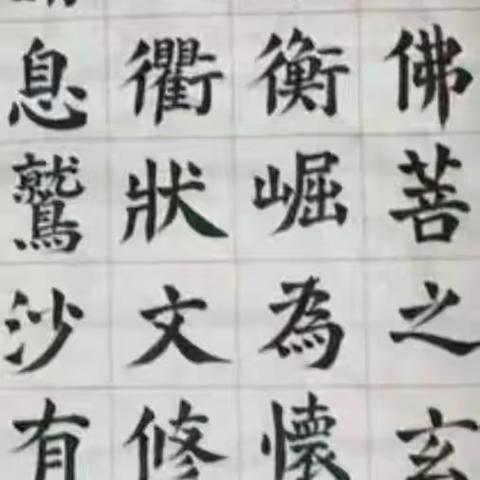 佛菩之玄
衡崛為懷
衢狀文修
息鷲沙有